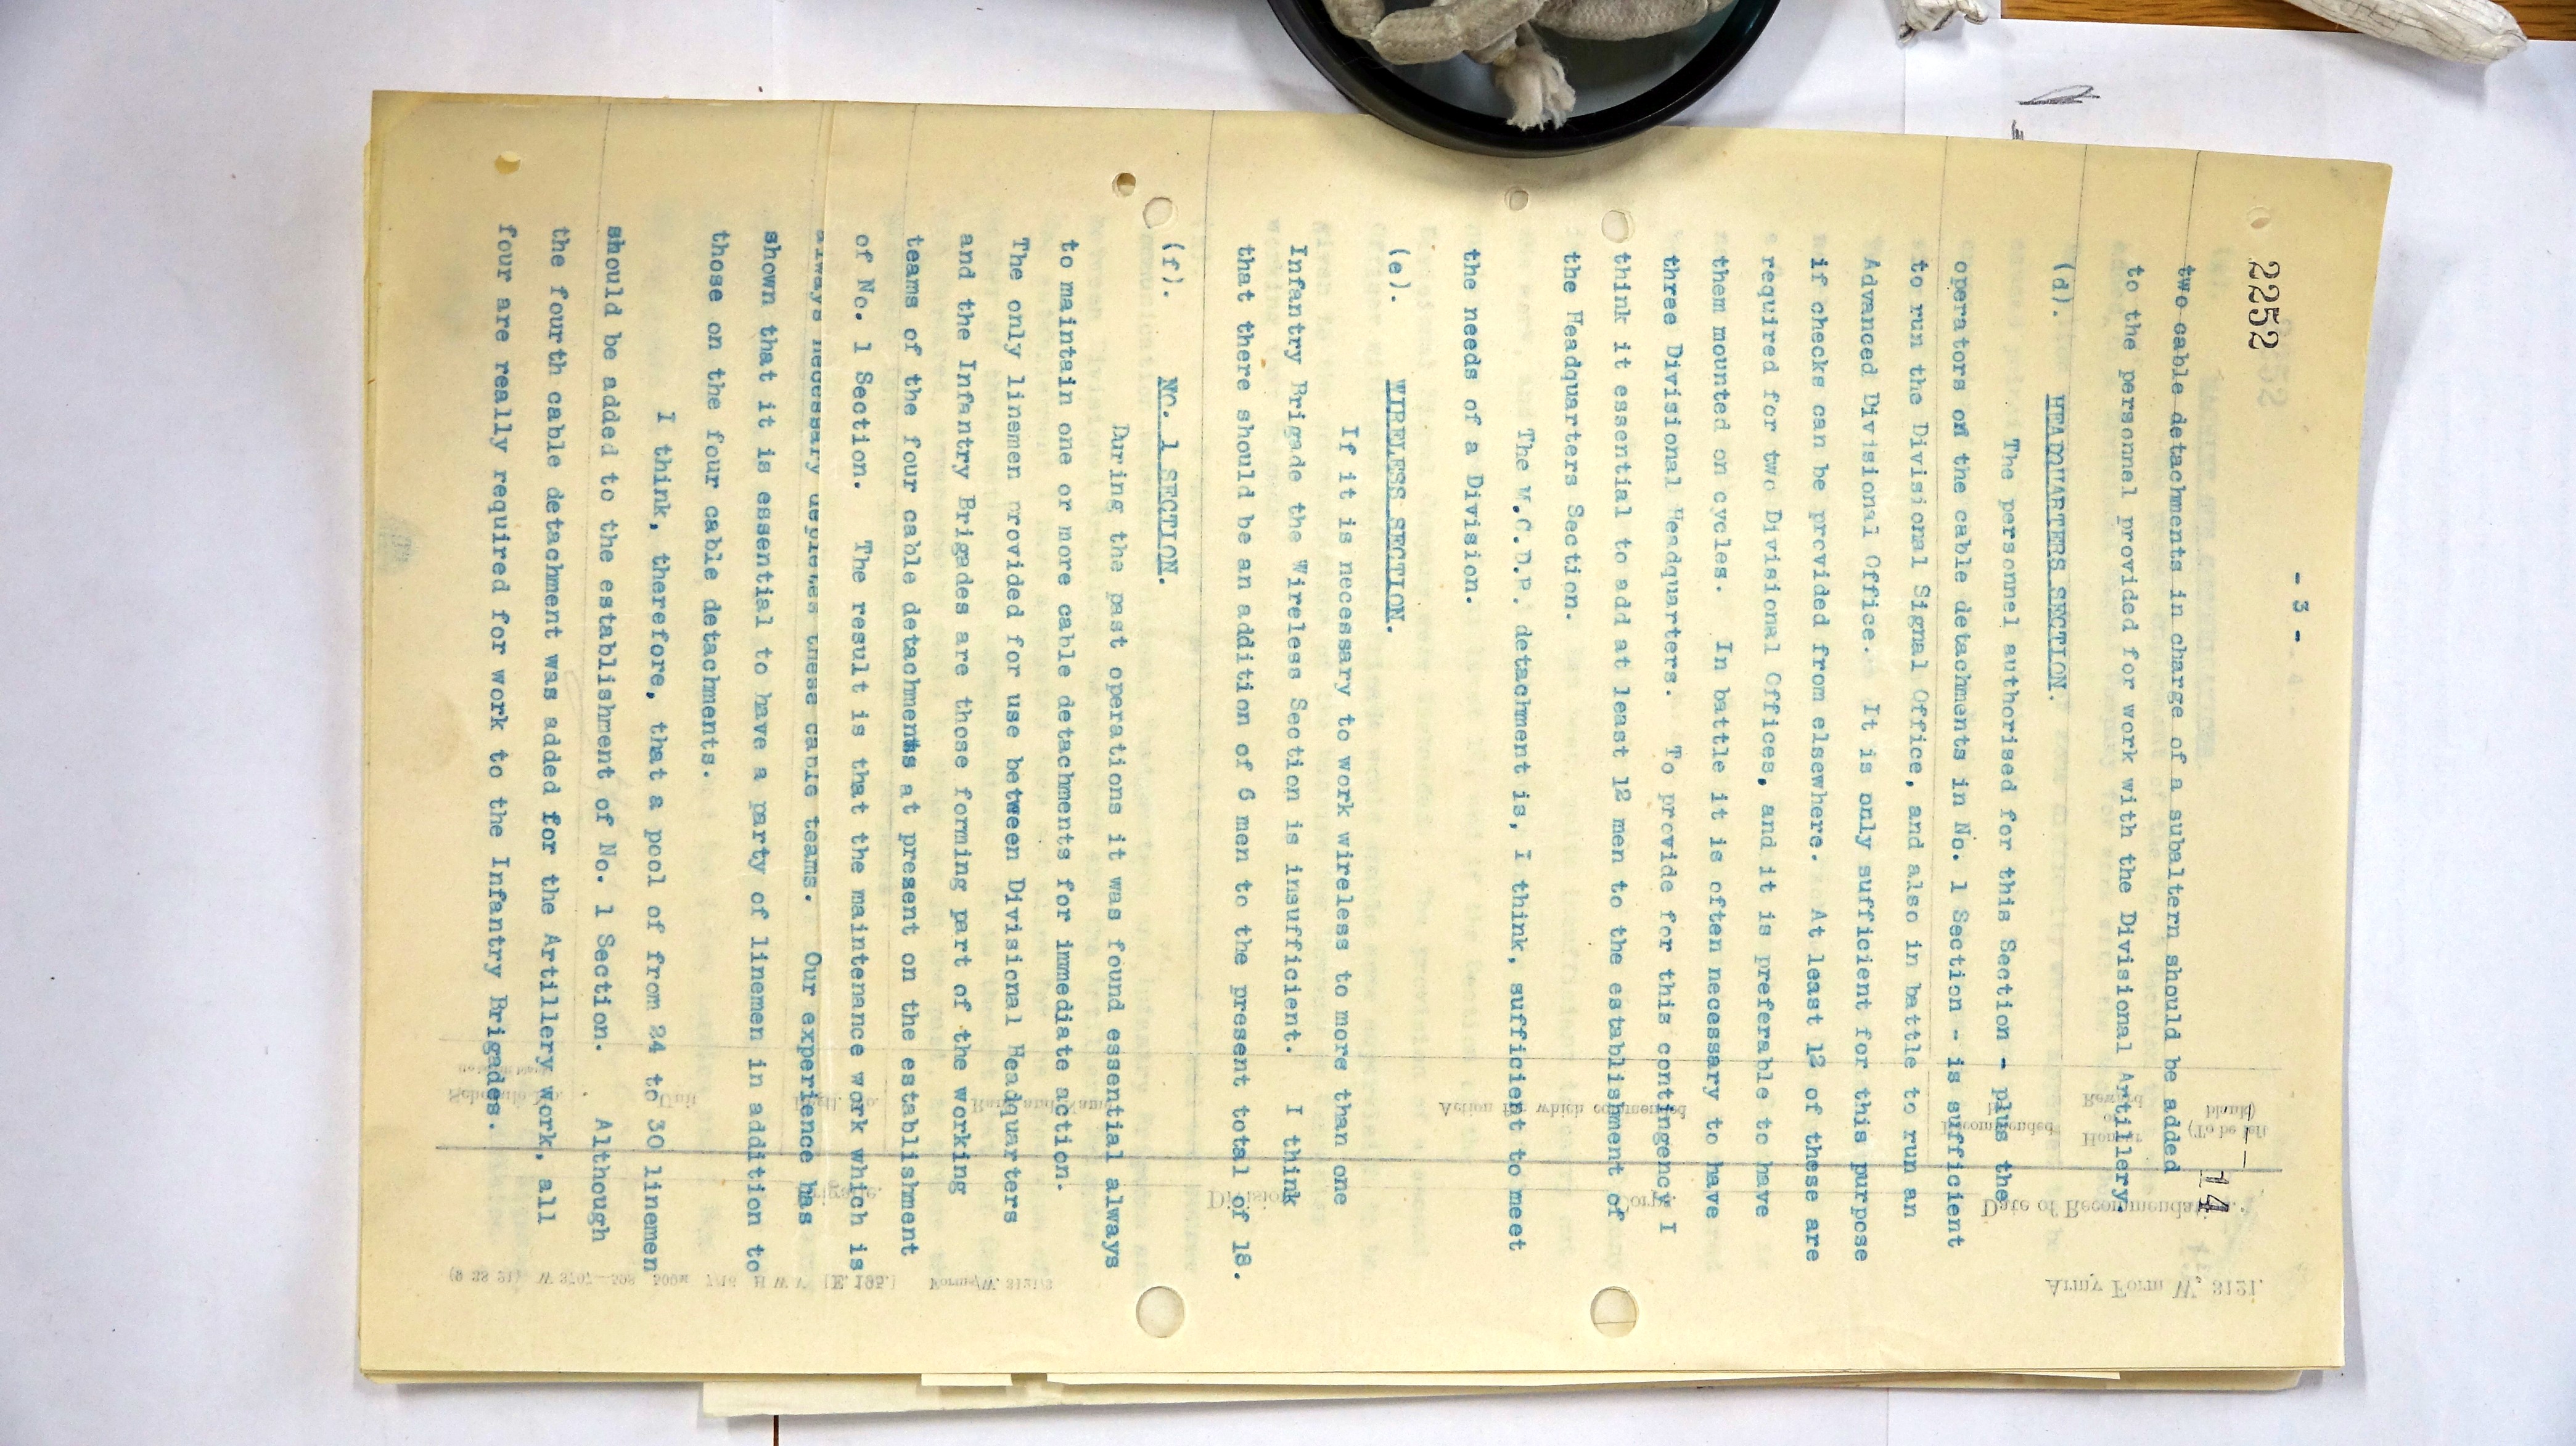 - 3 -
2252
14
two cable detachments in charge of a subaltern should be added
to the personnel provided for work with the Divisional Artillery.
(d). HEADQUARTERS SECTION.
The personnel authorised for this Section - plus the
operators on the cable detachments in No. 1 Section - is sufficient
to run the Divisional Signal Office, and also in battle to run an
Advanced Divisional Office. It is only sufficient for this purpose
if checks can be provided from elsewhere. At least 12 of these are
required for two Divisional Offices, and it is preferable to have
them mounted on cycles. In battle it is often necessary to have
three Divisional Headquarters. To provide for this contingency I
think it essential to add at least 12 men to the establishment of
the Headquarters Section.
The M.C.D.P. detachment is, I think, sufficient to meet
the needs of a Division.
(e). WIRELESS SECTION.
If it is necessary to work wireless to more than one
Infantry Brigade the Wireless Section is insufficient. I think
that there should be an addition of 6 men to the present total of 18.
(f). NO. 1 SECTION.
During the past operations it was found essential always
to maintain one or more cable detachments for immediate action.
The only linemen provided for use between Divisional Headquarters
and the Infantry Brigades are those forming part of the working
teams of the four cable detachments at present on the establishment
of No. 1 Section. The result is that the maintenance work which is
always necessary depletes these cable teams. Our experience has
shown that it is essential to have a party of linemen in addition to
those on the four cable detachments.
I think, therefore, that a pool of from 24 to 30 linemen
should be added to the establishment of No. 1 Section. Although
the fourth cable detachment was added for the Artillery work, all
four are really required for work to the Infantry Brigades.
Army Form W. 3121.
Date of Recommendation
Corps
Division
Brigade.
(To be left
blank)
Honour
or
Reward
Recommended
Action for which commended
Rank and Name
Unit